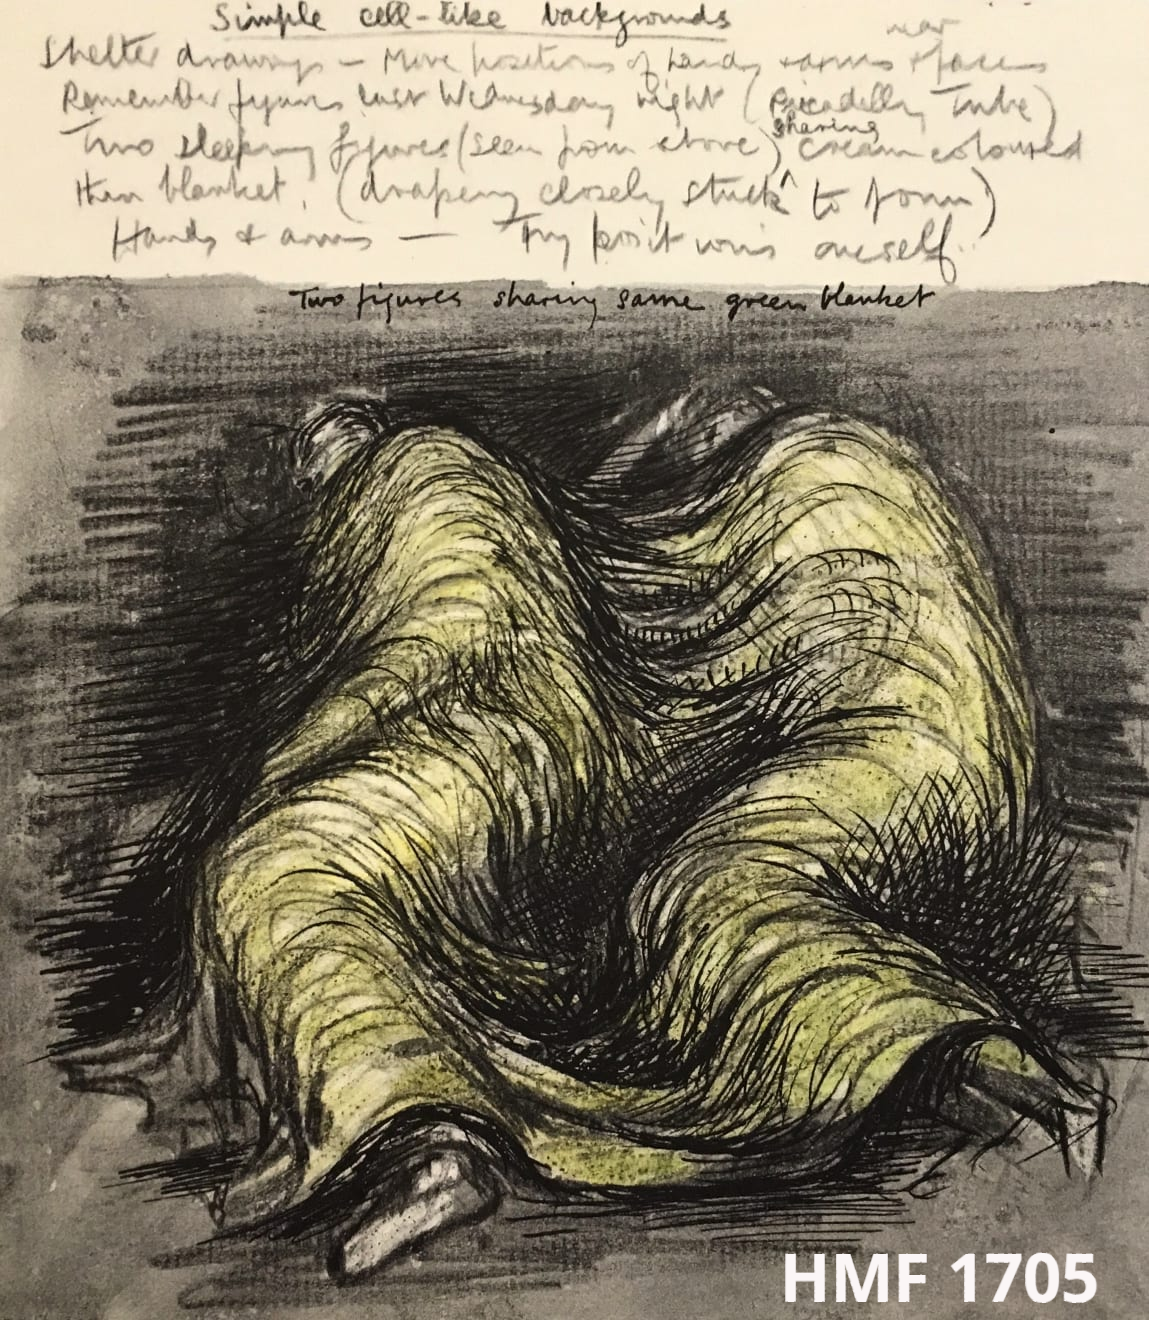 Simple cell-like backgrounds
near
Shelter drawings — More positions of hands + arms + faces
Remember figures last Wednesday night (Piccadilly Tube)
sharing
Two sleeping figures (seen from above) cream coloured
thin blanket. (drapery closely stuck to form)
Hands & arms — Try positions oneself.
Two figures sharing same green blanket
HMF 1705